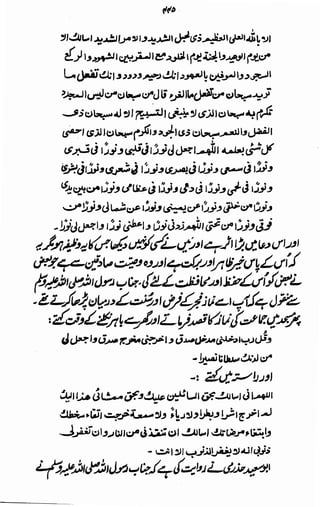 ۲۲۵
الا باللہ العلی العظیم ذی الحبل الشدید والامر الشدید اسالك الا
من یوم الوعید والجنة یوم الخلود مع المقربین الشھود والرکع
السجود والموفین بالعھود انك رحیم ودود وانك تفعل ما
ترید سبحان من تفضل بالعز وقال به سبحان من لبس المجد و
تکرم به سبحان الذی لا ینبغی التسبیح الا له سبحان ذی
الفضل والنعم سبحان ذی الجود والکرم سبحان الذی احصی
کل شئی بعلمه اللھم اجعل لی نورًا فی قلبی ونورًا فی قبری
ونورًا فی سمعی ونورًا فی بصری ونورًا فی شعری ونورًا فی بشری
ونورًا فی لحمی ونورًا فی دمی ونورًا فی عظامی ونورًا من بین یدی
ونورًا من خلفی ونورًا عن یمینی ونورًا عن شمالی ونورًا من
فوقی ونورًا من تحتی اللھم زدنی نورًا واعطنی نورًا واجعل لی نورًا۔
اور اس دعا میں بڑا اثر ہے اور میں نے کسی کو نہیں دیکھا جس کا یہ وظیفہ ہو مگر یہ
کہ اُس کے پاس خیر ظاہر اور برکت ہے اور وہ وصیت صادقین سے ہے جو بعض
نے بعض کو اُس کے حفظ اور محافظت کے لئے کی۔ جناب رسول اللہ صلی اللہ علیہ وسلم
سے منقول ہے کہ آپ اسے نماز فجر کے فرض اور سنت کے درمیان پڑھا کرتے تھے۔
پھر مسجد میں جماعت کی نماز کا قصد فرماتے اور گھر سے باہر نکلنے کے وقت کہتے:
وقل رب ادخلنی مدخل صدق واخرجنی مخرج صدق واجعل لی
من لدنك سلطانا نصیرا۔
اور راستہ میں کہتے :۔
اللھم انی اسالك بحق السائلین علیك وبحق ممشای ھذا الیك
لم اخرج اشرا ولا بطرا ولا ریاءً ولا سمعة خرجت اتقاء سخطك
وابتغاء مرضاتك اسالك ان تنقذنی من النار وان تغفرلی
ذنوبی انه لا یغفر الذنوب الا انت۔
ابو سعید خدری نے روایت کی ہے کہ جناب رسول اللہ صلی اللہ علیہ وسلم نے